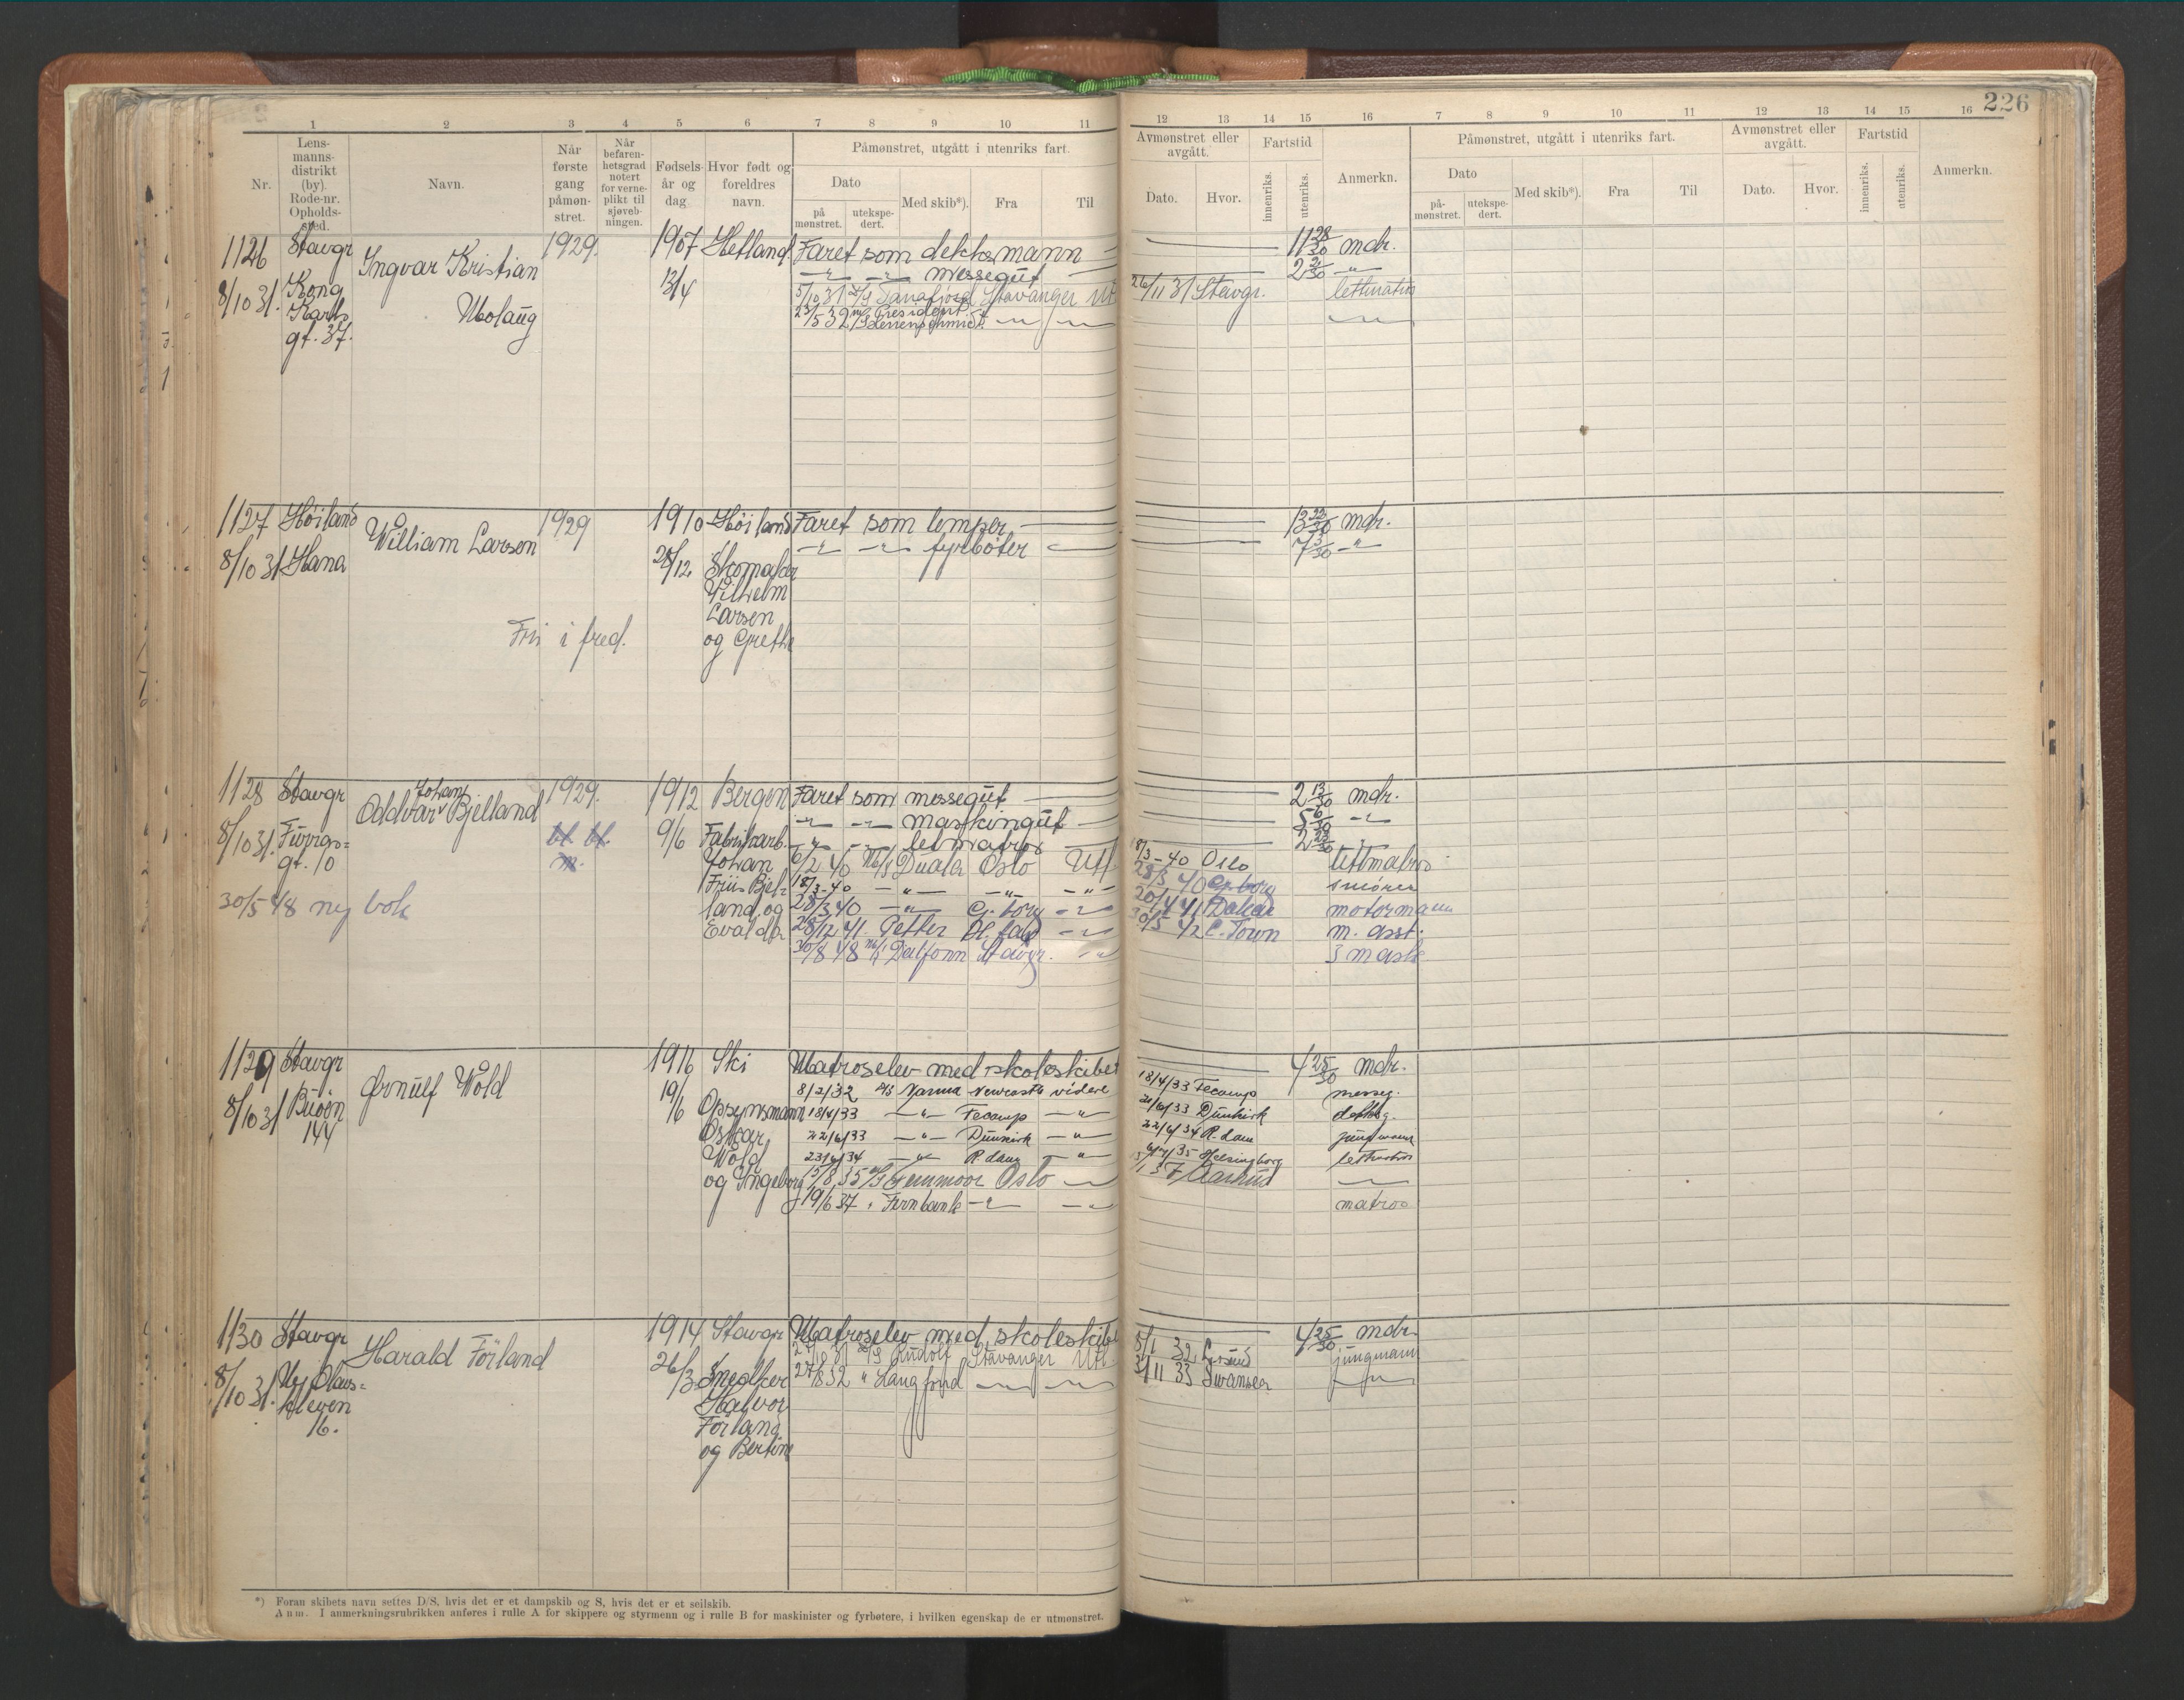 226
1 2 3 4 5 6 7 8 9 10 11 12 13 14 15 16 7 8 9 10 11 12 13 14 15 16
Nr.
Lens-
manns-
distrikt
(by).
Rode-nr.
Opholds-
sted.
Navn.
Når
første
gang
påmøn-
stret.
Når
befaren-
hetsgrad
notert
for verne-
plikt til
sjøveb-
ningen.
Fødsels-
år og
dag.
Hvor født og
foreldres
navn.
Påmønstret, utgått i utenriks fart.
Dato
på
mønstret.
utekspe-
dert.
Med skib*).
Fra
Til
Avmønstret eller
avgått.
Dato.
Hvor.
Fartstid
innenriks.
utenriks.
Anmerkn.
Påmønstret, utgått i utenriks fart.
Dato
på-
mønstret.
utekspe-
dert.
Med skib*).
Fra
Til
Avmønstret eller
avgått.
Dato.
Hvor.
Fartstid
innenriks.
utenriks.
Anmerkn.
1126 Stavgr 1929. 1907 Hetland Faret som dekksmann 11 28/30 mdr.
Ingvar Kristian
— " — — " — messegut — 2 /30 — " —
8/10 31. Kong 13/4 5/10 31 Stavanger Utl 26/11 31 Stavgr. lettmatros
Karls Molaug 23/5 32 President — " — — " — — " —
gt. 37.
1127 Høiland William Larsen 1929 1910 Høiland Faret som lemper 13 22/30 mdr.
— " — — " — fyrbøter 7 /30 — " —
8/10 31 Hana 28/12 Skomaker
Vilhelm
Larsen
Fri i fred. og Grethe
1128 Stavgr Johan 1929. 1912 Bergen Faret som messegut 2 13/30 mdr.
Oddvar Bjelland
— " — — " — maskingut 5 6/30 — " —
8/10 31. 9/6 Fabrikarb. — " — — " — letmatros 2 23/30
gt. 10 Johan /2 40 M/S Duala Oslo Utl 18/3-40 Oslo lettmatros
Friis Bjel- 18/3-40 — " — — " — — " — 28/3 40 G. borg smører
30/5 48 ny bok land og 28/3 40 — " — G. borg — " — 20/4 41 Dakar motormann
Evalda 28/12 41 Petter — " — 30/5 42 C. Town m. asst.
30/8 48 M/S Dalfonn Stavgr. — " — 3 mask
1129 Stavgr Ørnulf Wold 1916 Ski Matroselev med skoleskibet 4 25/30 mdr.
8/10 31 Buøÿn 144 19/6 Opsynsmann 8/2/32 D/S Norma Newcastle videre 18/4/33 Fecamp messeg.
18/4/33 — " — Fecamp — " — 21/6/33 Dunkirk deksg.
Oskar 22/6/33 — " — Dunkirk — " — 22/6/34 R. dam jungmann
Wold 23/6/34 — " — R. dam — " — Helsingborg lettmatros
og Ingeborg 15/8 35 M/S Fernmoor Oslo — " — /1 37 Aarhus — " —
19/6 37 " Fernbank — " — — " — matros
1130 Stavgr Harald Förland 1914 Stavgr Matroselev med skoleskibet 4 25/30 mdr.
8/10 31. 26/3 Snedker M/S Rudolf Stavanger Utl 8/1 32 jungmann
Halvor 27/8 32 " Langfjord — " — — " — 3/11 33 Swansea — " —
kleven Förland
16. og Bertine
*) Foran skibets navn settes D/S, hvis det er et dampskib og S, hvis det er et seilskib.
Anm. I anmerkningsrubrikken anføres i rulle A for skippere og styrmenn og i rulle B for maskinister og fyrbøtere, i hvilken egenskap de er utmønstret.